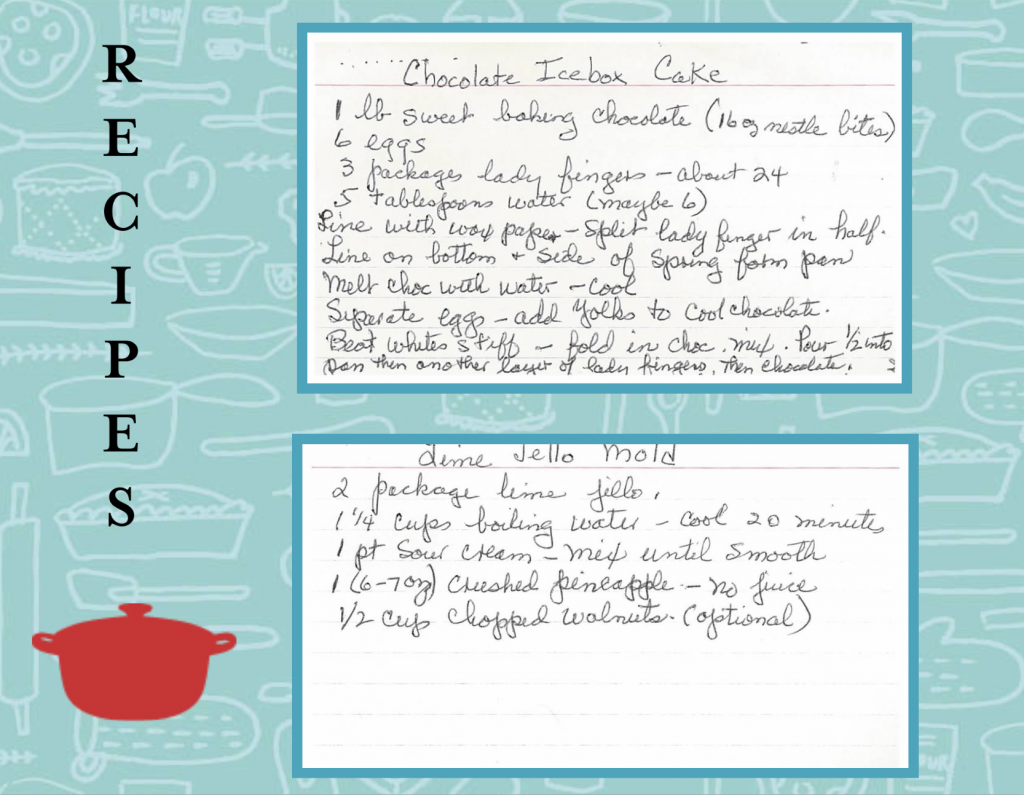 RECIPES
Chocolate Icebox Cake
1 lb sweet baking chocolate (16 oz nestle bites)
6 eggs
3 packages lady fingers - about 24
5 tablespoons water (maybe 6)
Line with wax paper - Split lady finger in half.
Line on bottom + side of Spring form pan
Melt choc with water - cool
Separate eggs - add yolks to cool chocolate.
Beat whites stiff - fold in choc. mix. Pour 1/2 into
pan then another layer of lady fingers, then chocolate.
Lime Jello Mold
2 package lime jello,
1 1/4 cups boiling water - cool 20 minutes
1 pt sour cream - mix until smooth
1 (6-7 oz) crushed pineapple - no juice
1/2 cup chopped walnuts. (optional)
FLOUR